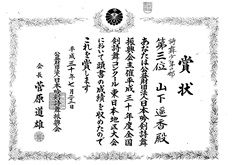 賞状
詩舞少年の部
第三位 山下遥香殿
あなたは公益財団法人日本吟剣詩舞
振興会主催平成三十年度全国
剣詩舞コンクール東日本地区大会
において頭書の成績を収めたので
これを賞します
平成三十年七月二十日
公益財団法人日本吟剣詩舞振興会
会長 菅原道雄